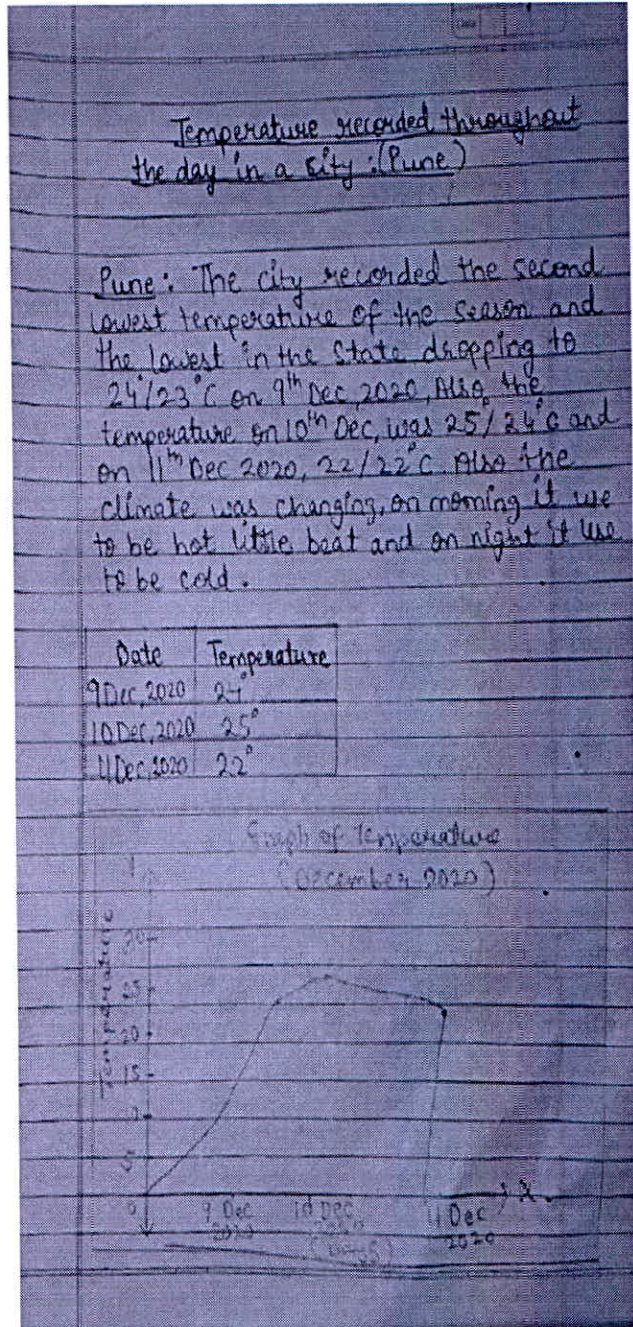 Temperature recorded throughout
the day in a city :(Pune)
Pune: The city recorded the second
lowest temperature of the season and
the lowest in the State dropping to
24°/23°C on 9th Dec, 2020, Also the
temperature on 10th Dec, was 25°/24°C and
on 11th Dec 2020, 22/22°C Also the
climate was changing, on morning it use
to be hot little beat and on night it use
to be cold.
Date Temperature
9 Dec, 2020 24°
10 Dec, 2020 25°
11 Dec, 2020 22°
Graph of Temperature
(December 2020)
Temperature
30
25
20
15
5
0
9 Dec
2020
10 Dec
2020
11 Dec
2020
X
(Days)